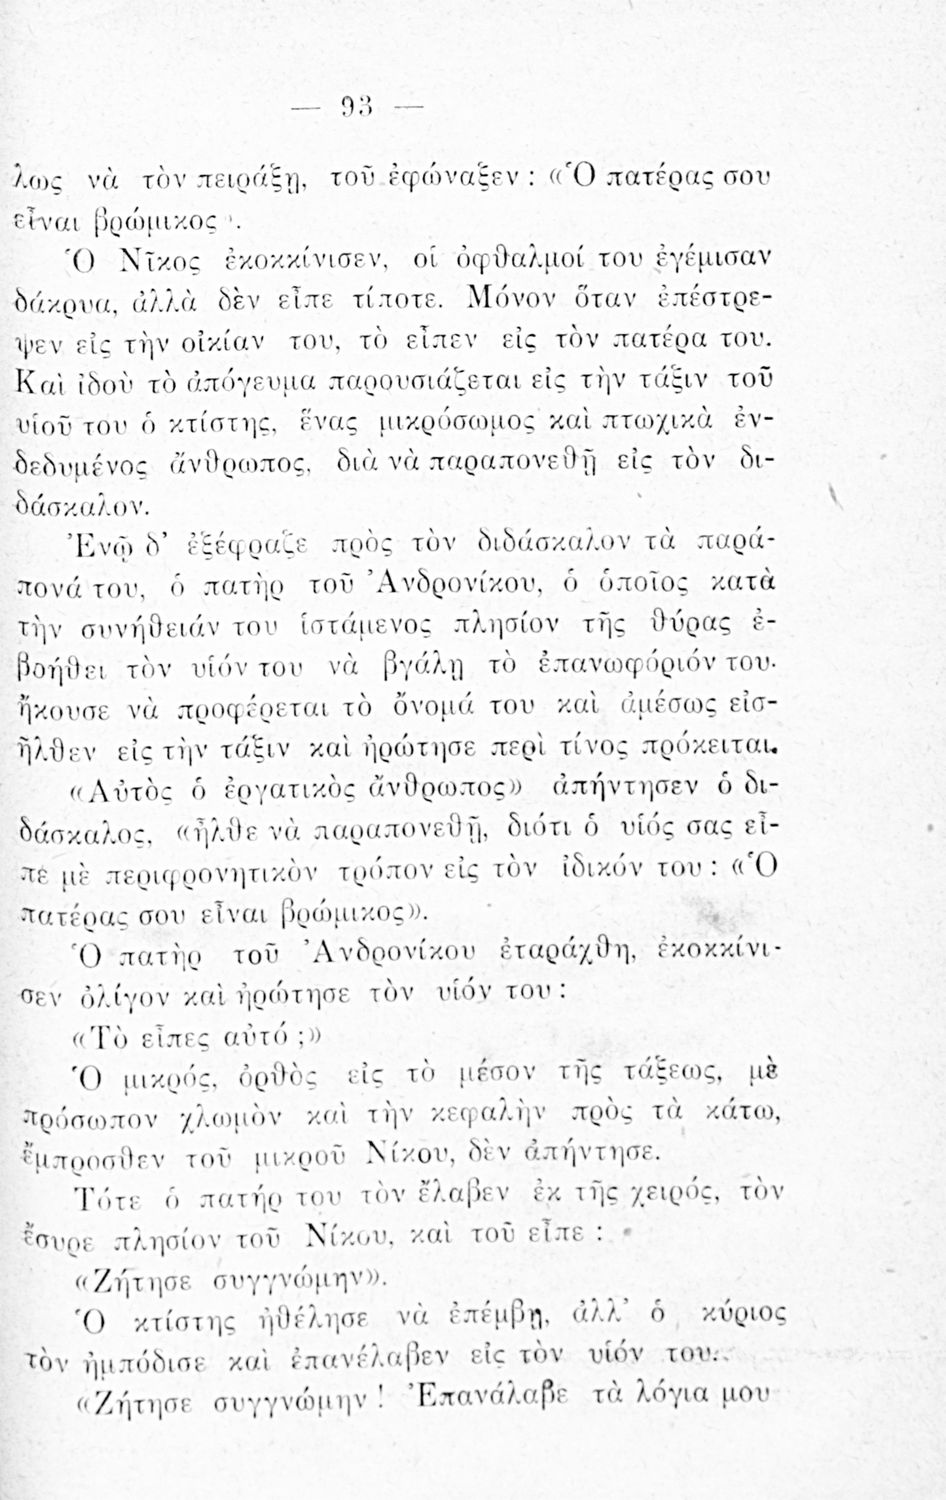 — 93 —
λως νὰ τὸν πειράξῃ, τοῦ ἐφώναξεν : «Ὁ πατέρας σου
εἶναι βρώμικος».
Ὁ Νῖκος ἐκοκκίνισεν, οἱ ὀφθαλμοί του ἐγέμισαν
δάκρυα, ἀλλὰ δὲν εἶπε τίποτε. Μόνον ὅταν ἐπέστρε-
ψεν εἰς τὴν οἰκίαν του, τὸ εἶπεν εἰς τὸν πατέρα του.
Καὶ ἰδοὺ τὸ ἀπόγευμα παρουσιάζεται εἰς τὴν τάξιν τοῦ
υἱοῦ του ὁ κτίστης, ἕνας μικρόσωμος καὶ πτωχικὰ ἐν-
δεδυμένος ἄνθρωπος, διὰ νὰ παραπονεθῇ εἰς τὸν δι-
δάσκαλον.
Ἐνῷ δ’ ἐξέφραζε πρὸς τὸν διδάσκαλον τὰ παρά-
πονά του, ὁ πατὴρ τοῦ Ἀνδρονίκου, ὁ ὁποῖος κατὰ
τὴν συνήθειάν του ἱστάμενος πλησίον τῆς θύρας ἐ-
βοήθει τὸν υἱόν του νὰ βγάλῃ τὸ ἐπανωφόριόν του.
ἤκουσε νὰ προφέρεται τὸ ὄνομά του καὶ ἀμέσως εἰσ-
ῆλθεν εἰς τὴν τάξιν καὶ ἠρώτησε περὶ τίνος πρόκειται.
«Αὐτὸς ὁ ἐργατικὸς ἄνθρωπος» ἀπήντησεν ὁ δι-
δάσκαλος, «ἦλθε νὰ παραπονεθῇ, διότι ὁ υἱός σας εἶ-
πε μὲ περιφρονητικὸν τρόπον εἰς τὸν ἰδικόν του : «Ὁ
πατέρας σου εἶναι βρώμικος».
Ὁ πατὴρ τοῦ Ἀνδρονίκου ἐταράχθη, ἐκοκκίνι-
σεν ὀλίγον καὶ ἠρώτησε τὸν υἱόν του :
«Τὸ εἶπες αὐτό ;»
Ὁ μικρός, ὀρθὸς εἰς τὸ μέσον τῆς τάξεως, μὲ
πρόσωπον χλωμὸν καὶ τὴν κεφαλὴν πρὸς τὰ κάτω,
ἔμπροσθεν τοῦ μικροῦ Νίκου, δὲν ἀπήντησε.
Τότε ὁ πατήρ του τὸν ἔλαβεν ἐκ τῆς χειρός, τὸν
ἔσυρε πλησίον τοῦ Νίκου, καὶ τοῦ εἶπε :
«Ζήτησε συγγνώμην».
Ὁ κτίστης ἠθέλησε νὰ ἐπέμβῃ, ἀλλ’ ὁ κύριος
τὸν ἠμπόδισε καὶ ἐπανέλαβεν εἰς τὸν υἱόν του:
«Ζήτησε συγγνώμην ! Ἐπανάλαβε τὰ λόγια μου